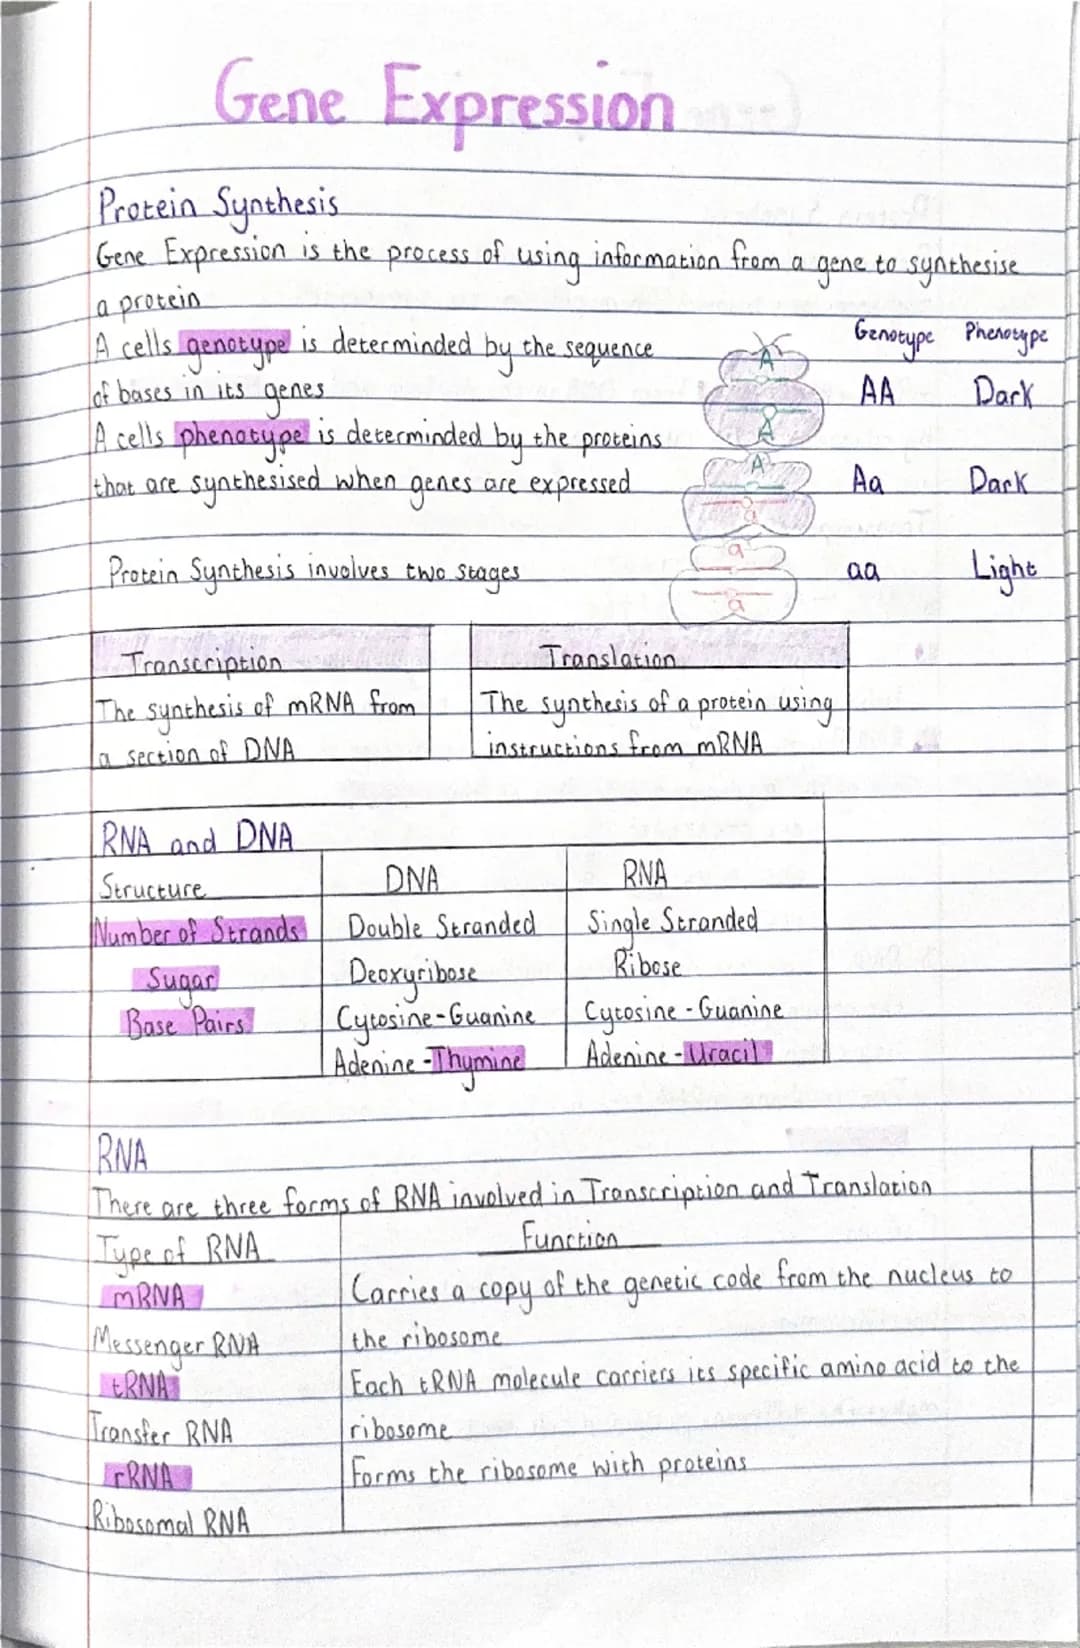 Gene Expression
Protein Synthesis
Gene Expression is the process of using information from a gene to synthesise
a protein
A cells genotype is determinded by the sequence
of bases in its genes
A cells phenotype is determinded by the proteins
that are synthesised when genes are expressed
Genotype Phenotype
A
A
AA Dark
A
a
Aa Dark
a
a
aa Light
Protein Synthesis involves two stages
Transcription
The synthesis of mRNA from
a section of DNA
Translation
The synthesis of a protein using
instructions from mRNA
RNA and DNA
Structure DNA RNA
Number of Strands Double Stranded Single Stranded
Sugar Deoxyribose Ribose
Base Pairs Cytosine-Guanine Cytosine - Guanine
Adenine - Thymine Adenine - Uracil
RNA
There are three forms of RNA involved in Transcription and Translation
Type of RNA Function
mRNA Carries a copy of the genetic code from the nucleus to
Messenger RNA the ribosome
tRNA Each tRNA molecule carriers its specific amino acid to the
Transfer RNA ribosome
rRNA Forms the ribosome with proteins
Ribosomal RNA